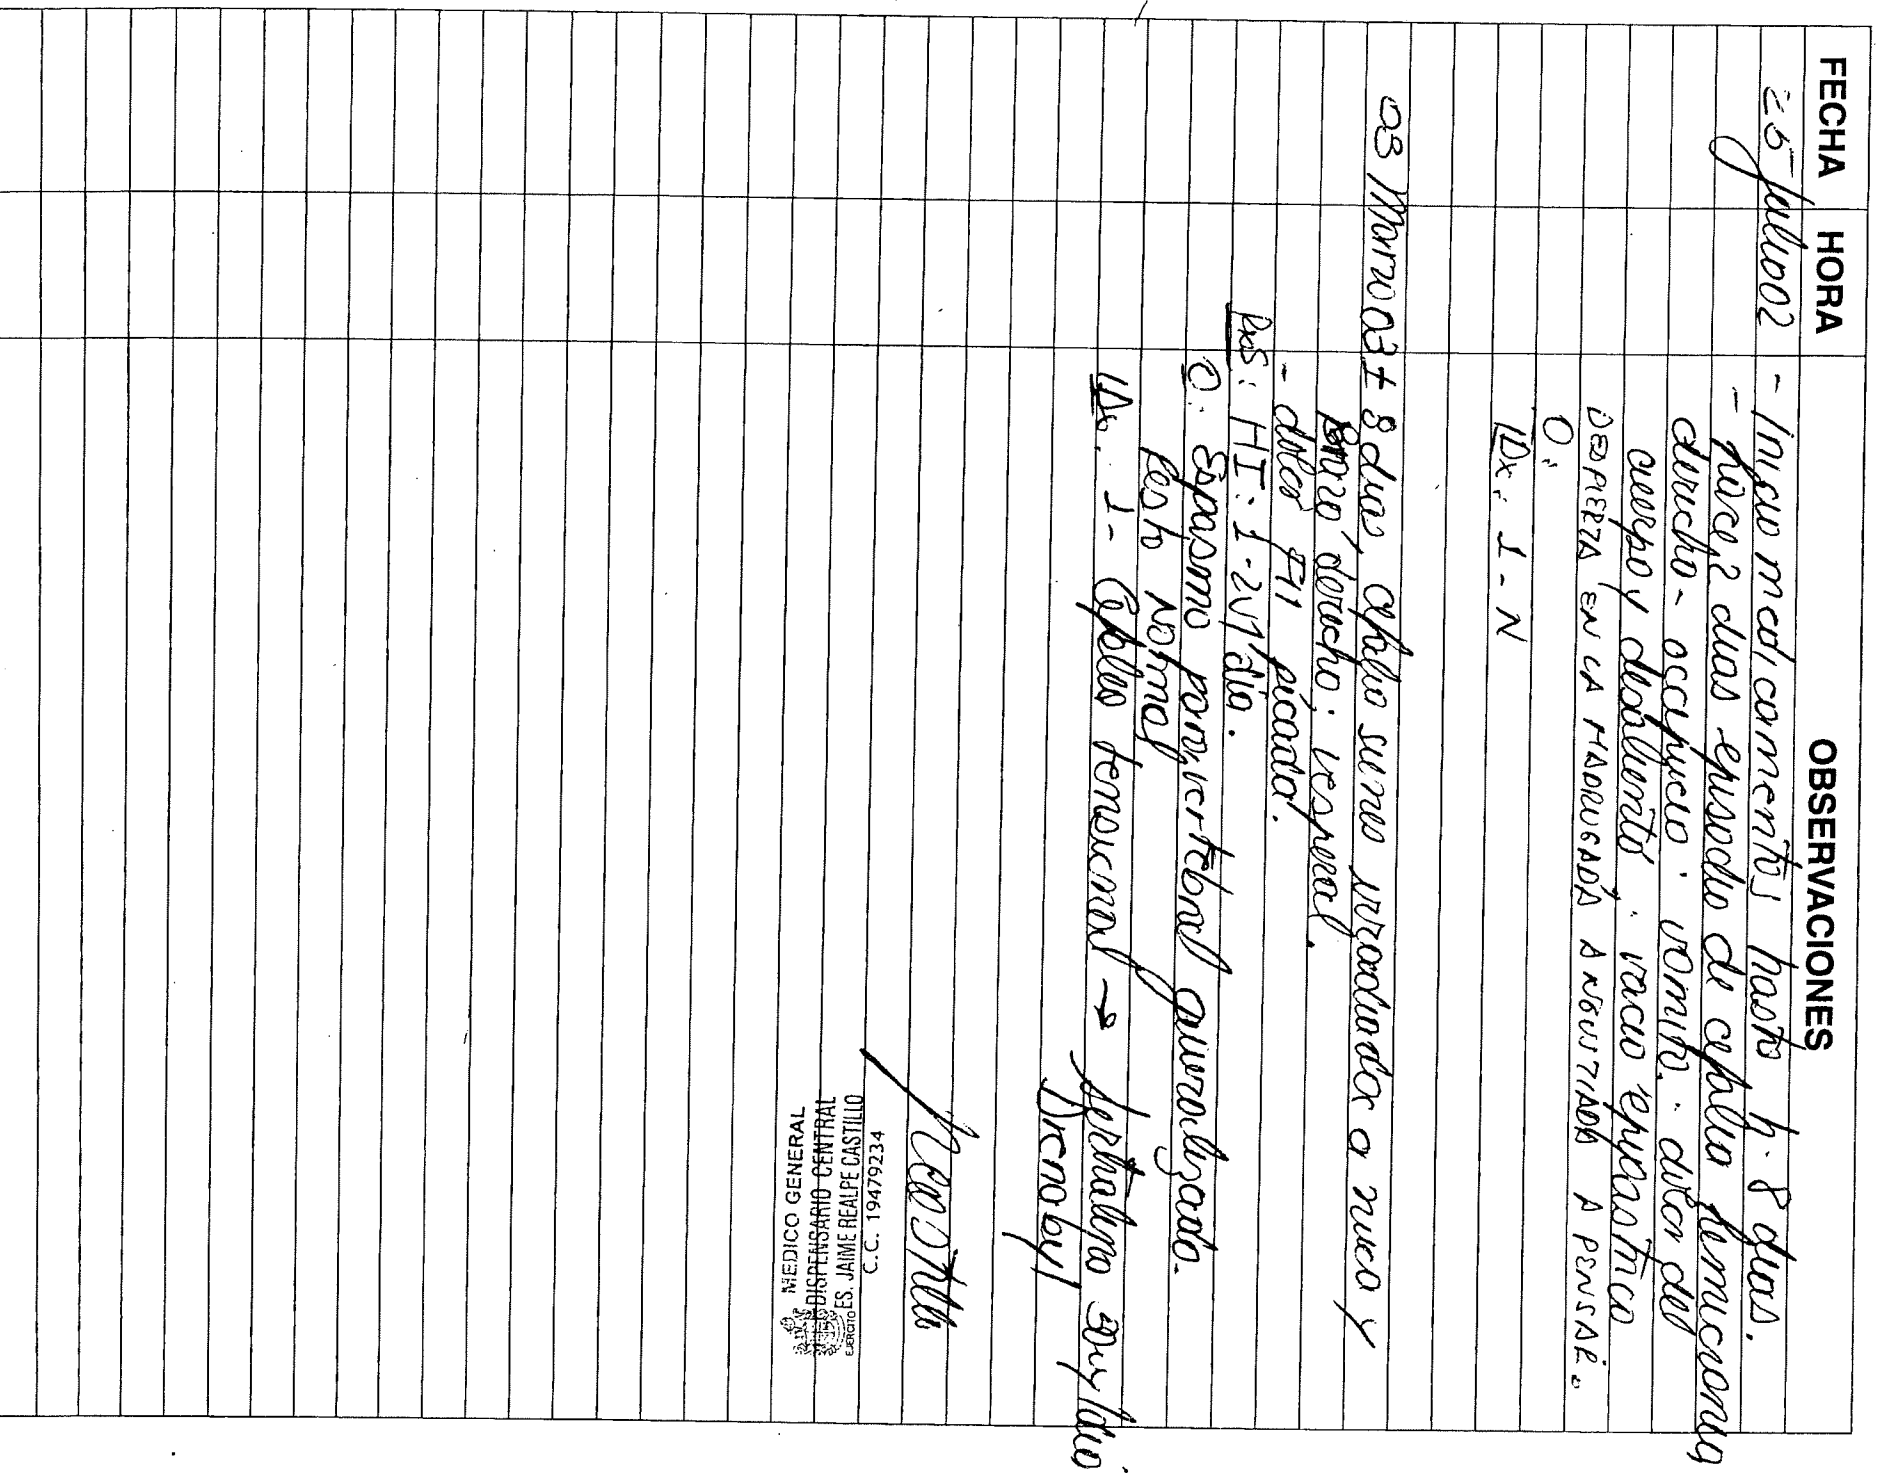 FECHA HORA OBSERVACIONES
25 Julio 02 - Inicio medicamentos hasta h. 8 dias.
- hace 2 dias episodio de cefalea hemicraneana
derecha - occipucio . vomito . dolor del
cuerpo y desaliento . vacio epigastrico
DESPIERTA EN LA MADRUGADA ANGUSTIADA A PENSAR.
O:
IDx: 1 - N
03 Marzo 03 ± 8 dias, irradiada a nuca y
brazo derecho; vesperal.
- dolor picada.
RxS: HI: 1-2V/dia.
O: Espasmo paravertebral generalizado.
Resto Normal
IDx. 1- Cefalea tensional → Sertralina 50mg/dia
MEDICO GENERAL
DISPENSARIO CENTRAL
ES. JAIME REALPE CASTILLO
EJERCITO
C.C. 19479234